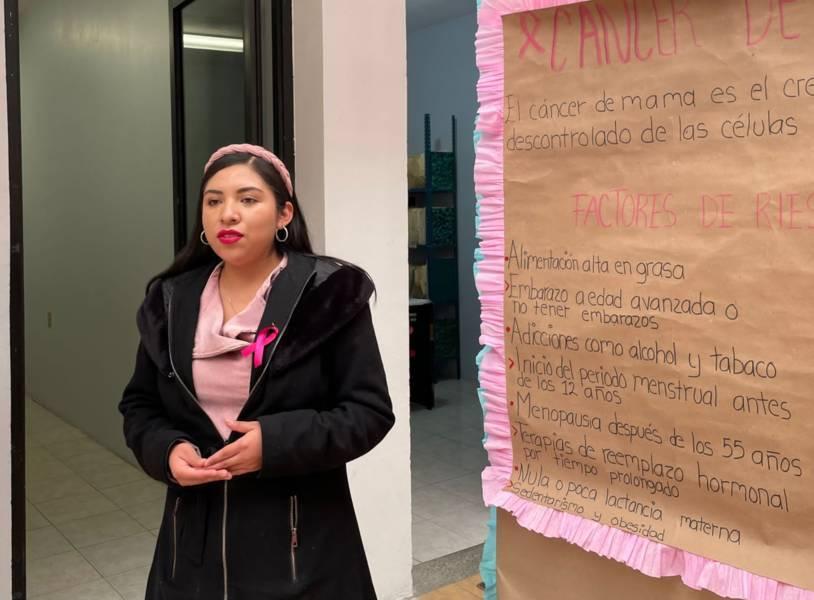 CÁNCER DE
El cáncer de mama es el cre
descontrolado de las células
FACTORES DE RIES
Alimentación alta en grasa
Embarazo a edad avanzada o
no tener embarazos
Adicciones como alcohol y tabaco
Inicio del periodo menstrual antes
de los 12 años
Menopausia después de los 55 años
Terapias de reemplazo hormonal
por tiempo prolongado
Nula o poca lactancia materna
Sedentarismo y obesidad